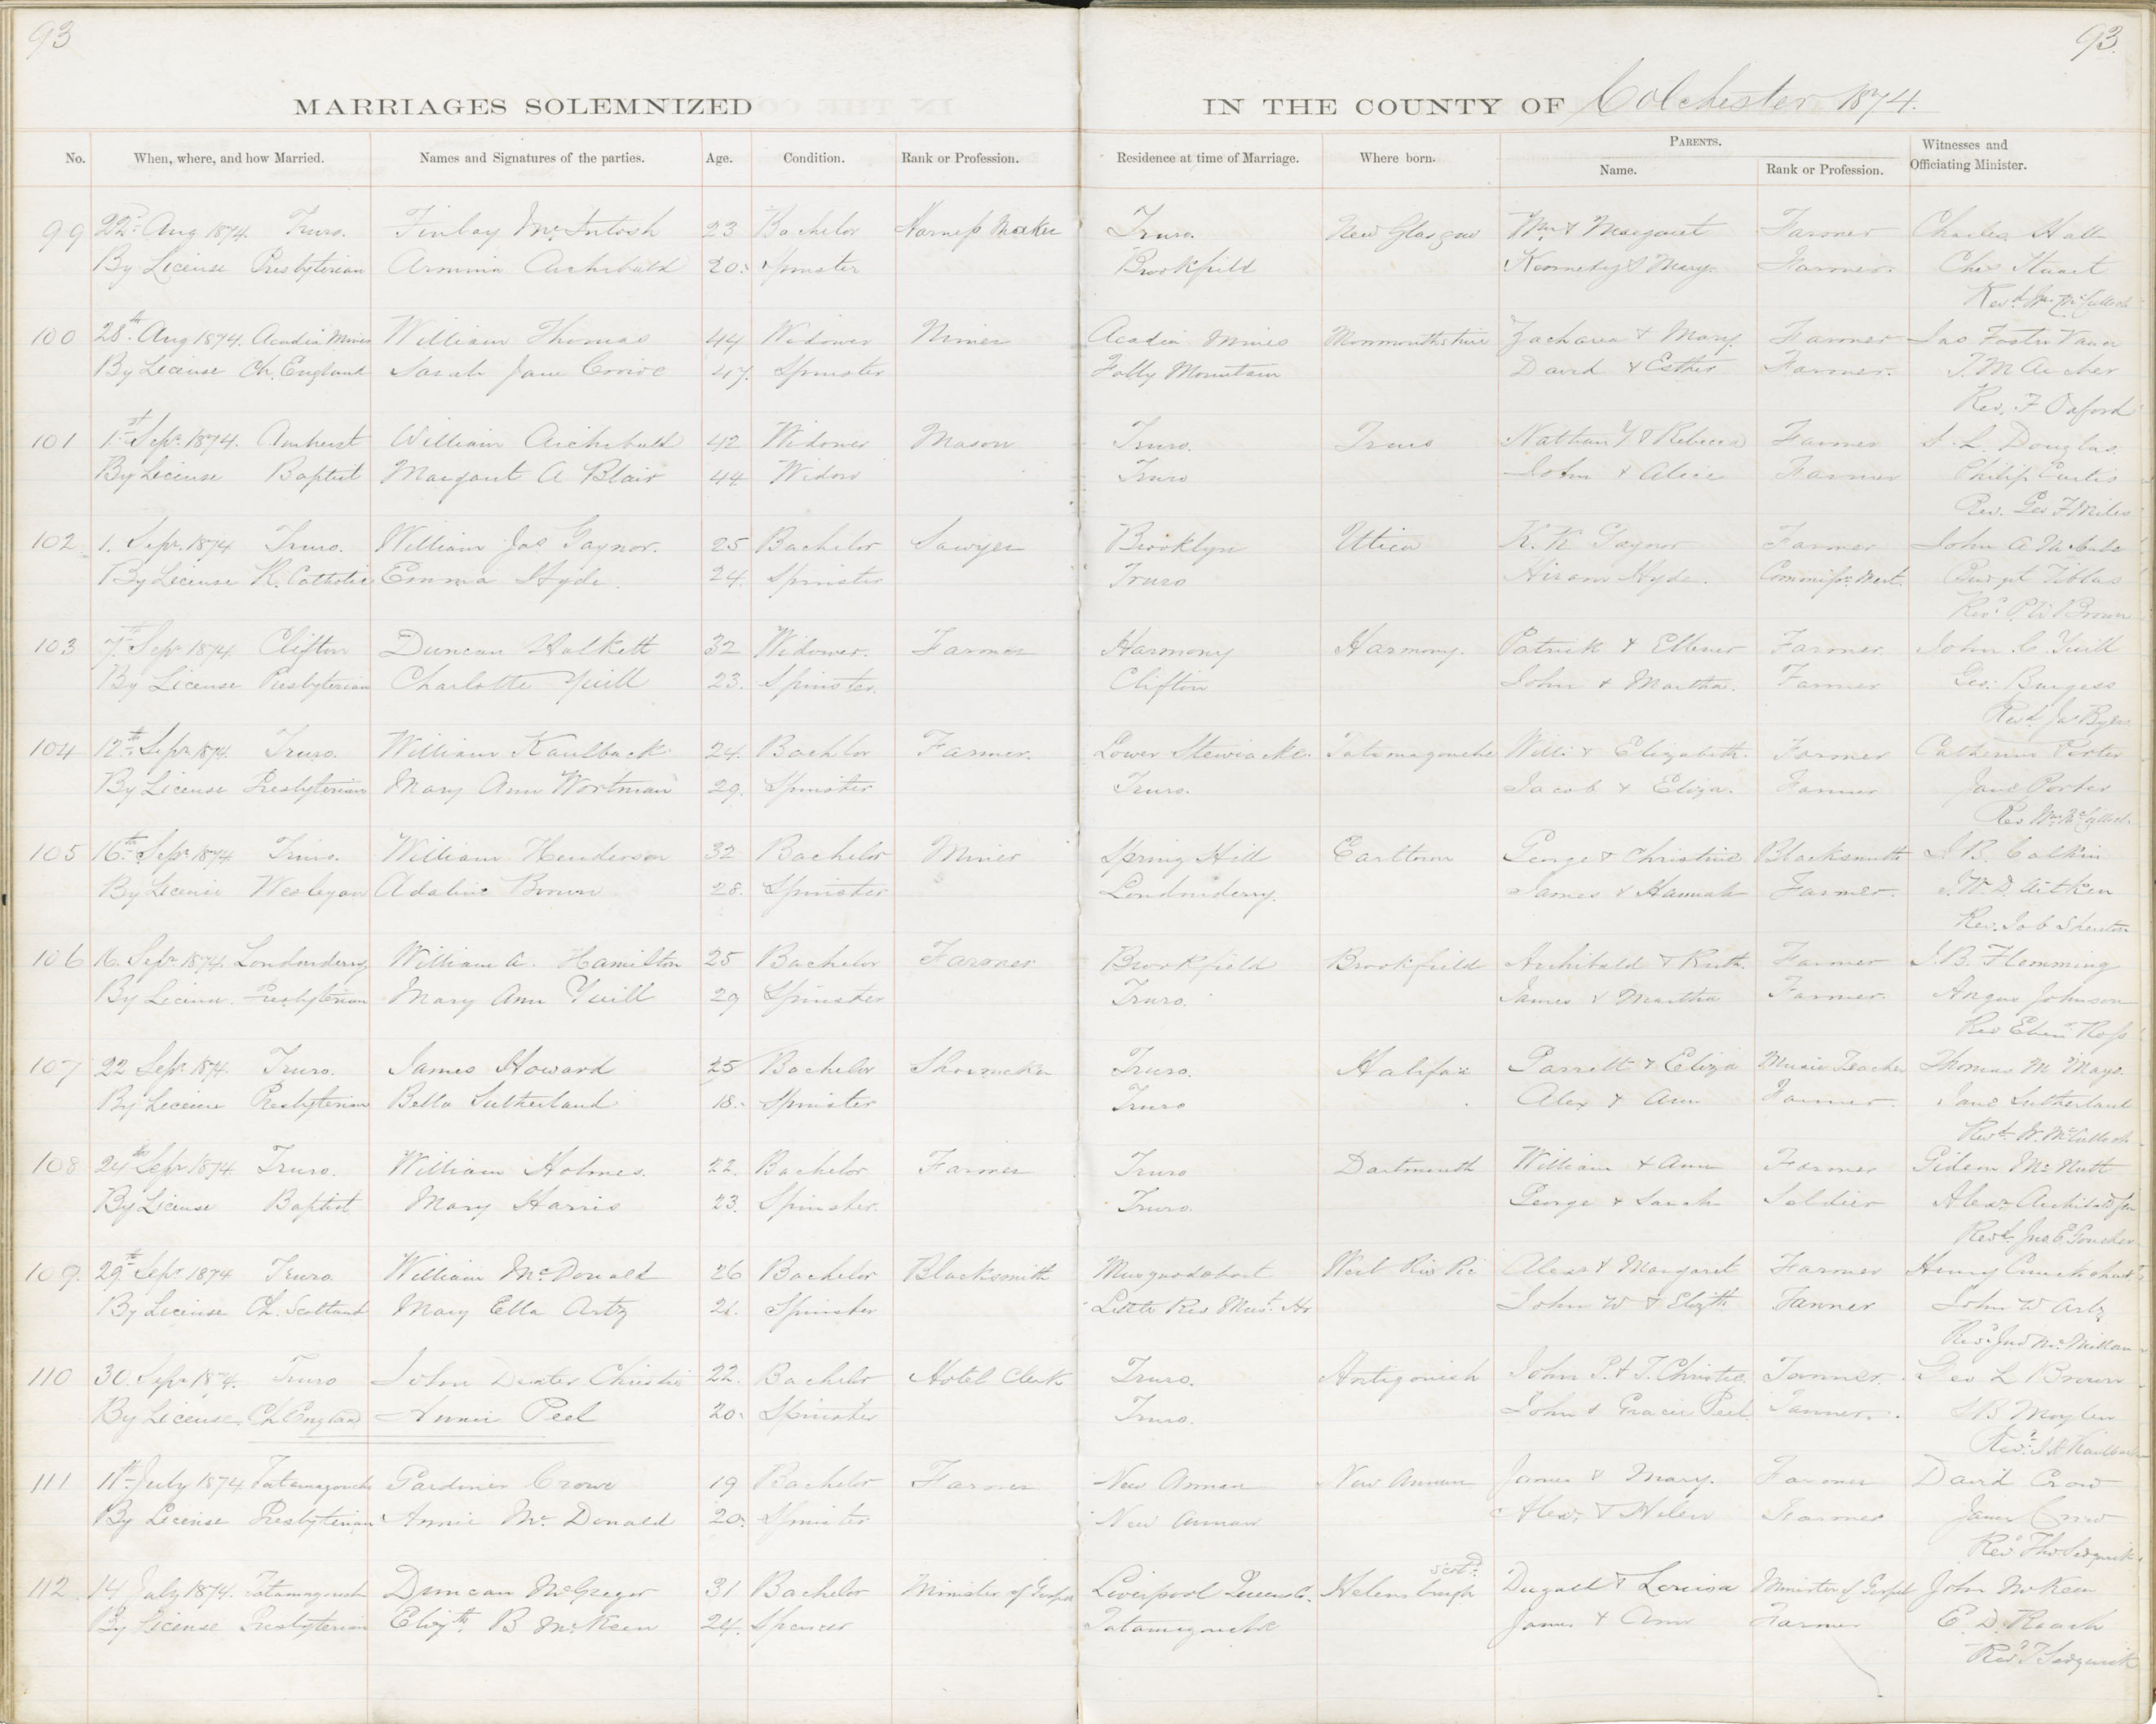 93
93.
MARRIAGES SOLEMNIZED IN THE COUNTY OF Colchester 1874.
No. When, where, and how Married. Names and Signatures of the parties. Age. Condition. Rank or Profession. Residence at time of Marriage. Where born. PARENTS. Name. Rank or Profession. Witnesses and Officiating Minister.
99 22d Aug 1874. Truro. Finlay McIntosh 23 Bachelor Harness Maker Truro. New Glasgow Wm & Margaret Farmer Charles Hall
By License Presbyterian Armina Archibald 20. Spinster Brookfield Kennedy & Mary. Farmer. Chas Stuart
Revd Wm McCulloch
100 28th Aug 1874. Acadia Mines William Thomas 44 Widower Miner Acadia Mines Monmouthshire Zacharia & Mary. Farmer Jas Foster
By License Ch. England Sarah Jane Crowe 47. Spinster Folly Mountain David & Esther Farmer. T. M Archer
Rev. F Oxford
101 1st Sepr 1874. Amherst William Archibald 42 Widower Mason Truro. Truro Nathan Y & Rebecca Farmer S. L. Douglas.
By License Baptist Margaret A Blair 44. Widow Truro John & Alice Farmer Philip Curtis
Rev. Geo F Miles
102 1. Sepr. 1874 Truro. William Jas Gaynor. 25 Bachelor Sawyer Brooklyn Uttica K. K Gaynor Farmer John A McCabe
By License R. Catholic Emma Hyde. 24. Spinster Truro Hiram Hyde. Commissn Mert.
Revd P. W Brown
103 7th Sepr 1874 Clifton Duncan Halkett 32 Widower. Farmer Harmony Harmony. Patrick & Ellener Farmer. John C. Yuill
By License Presbyterian Charlotte Yuill 23. Spinster. Clifton John & Martha. Farmer Geo. Burgess
Revd Jas Byers
104 12th Sepr 1874. Truro. William Kaulback. 24. Bachlor Farmer. Lower Stewiacke. Tatamagouche Willi & Elizabeth. Farmer Catherine Porter
By License Presbyterian Mary Ann Wortman 29. Spinster Truro. Jacob & Eliza. Farmer Jane Porter
Rev Wm McCulloch
105 16th Sepr 1874 Truro. William Henderson 32 Bachelor Miner Spring Hill Earltown George & Christine Blacksmith J. B. Calkin
By License Wesleyan Adaline Brown 28. Spinster Londonderry. James & Hannah Farmer. J. W. D. Aitken
Rev. Job Shenton
106 16. Sepr 1874. Londonderry William A. Hamilton 25 Bachelor Farmer Brookfield Brookfield Archibald & Ruth. Farmer J. B. Flemming
By License. Presbyterian Mary Ann Yuill 29 Spinster Truro. James & Martha Farmer. Angus Johnson
Rev Ebenr Ross
107 22 Sepr 1874. Truro. James Howard 25 Bachelor Shoemaker Truro. Halifax Garrett & Eliza Music Teacher Thomas M Mays.
By License Presbyterian Bella Sutherland 18. Spinster Truro Alex & Ann Farmer. Jane Sutherland
Revd W. McCulloch
108 24th Sepr 1874 Truro. William Holmes. 22. Bachelor Farmer Truro Dartmouth William & Ann Farmer Gideon McNutt
By License Baptist Mary Harris 23. Spinster. Truro. George & Sarah Soldier Alexr Archibald Jnr
Revd Jno E Goucher
109. 29th Sepr 1874 Truro William McDonald 26 Bachelor Blacksmith Musquodoboit West Riv Pic Alexr & Margaret Farmer Henry Cruickshank
By License Ch. Scotland Mary Ella Artz 21. Spinster Little Riv Musqt Hr John W & Elizth Tanner John W Artz
Revd Jno McMillan
110 30. Sepr 1874. Truro John Dexter Christie 22. Bachelor Hotel Clerk Truro. Antigonish John P. & J. Christie Tanner. Geo L Brown
By License. Ch England Annie Peel 20. Spinster Truro. John & Gracie Peel Tanner. Moylen
Revd J A Kaulback
111 11th July 1874 Tatamagouche Gardiner Crowe 19 Bachelor Farmer New Annan New Annan James & Mary. Farmer David Crow
By License Presbyterian Annie McDonald 20. Spinster New Annan Alexr & Helen Farmer James Crow
Revd Thos Sedgwick
112. 14 July 1874. Tatamagouche Duncan McGregor 31 Bachelor Minister of Gospel Liverpool Queens Co. Helensburgh Scotd Dugald & Louisa Minister of Gospel John McKeen
By License Presbyterian Elizth B McKeen 24. Spencer Tatamagouche James & Ann Farmer E. D. Roach
Revd T Sedgwick